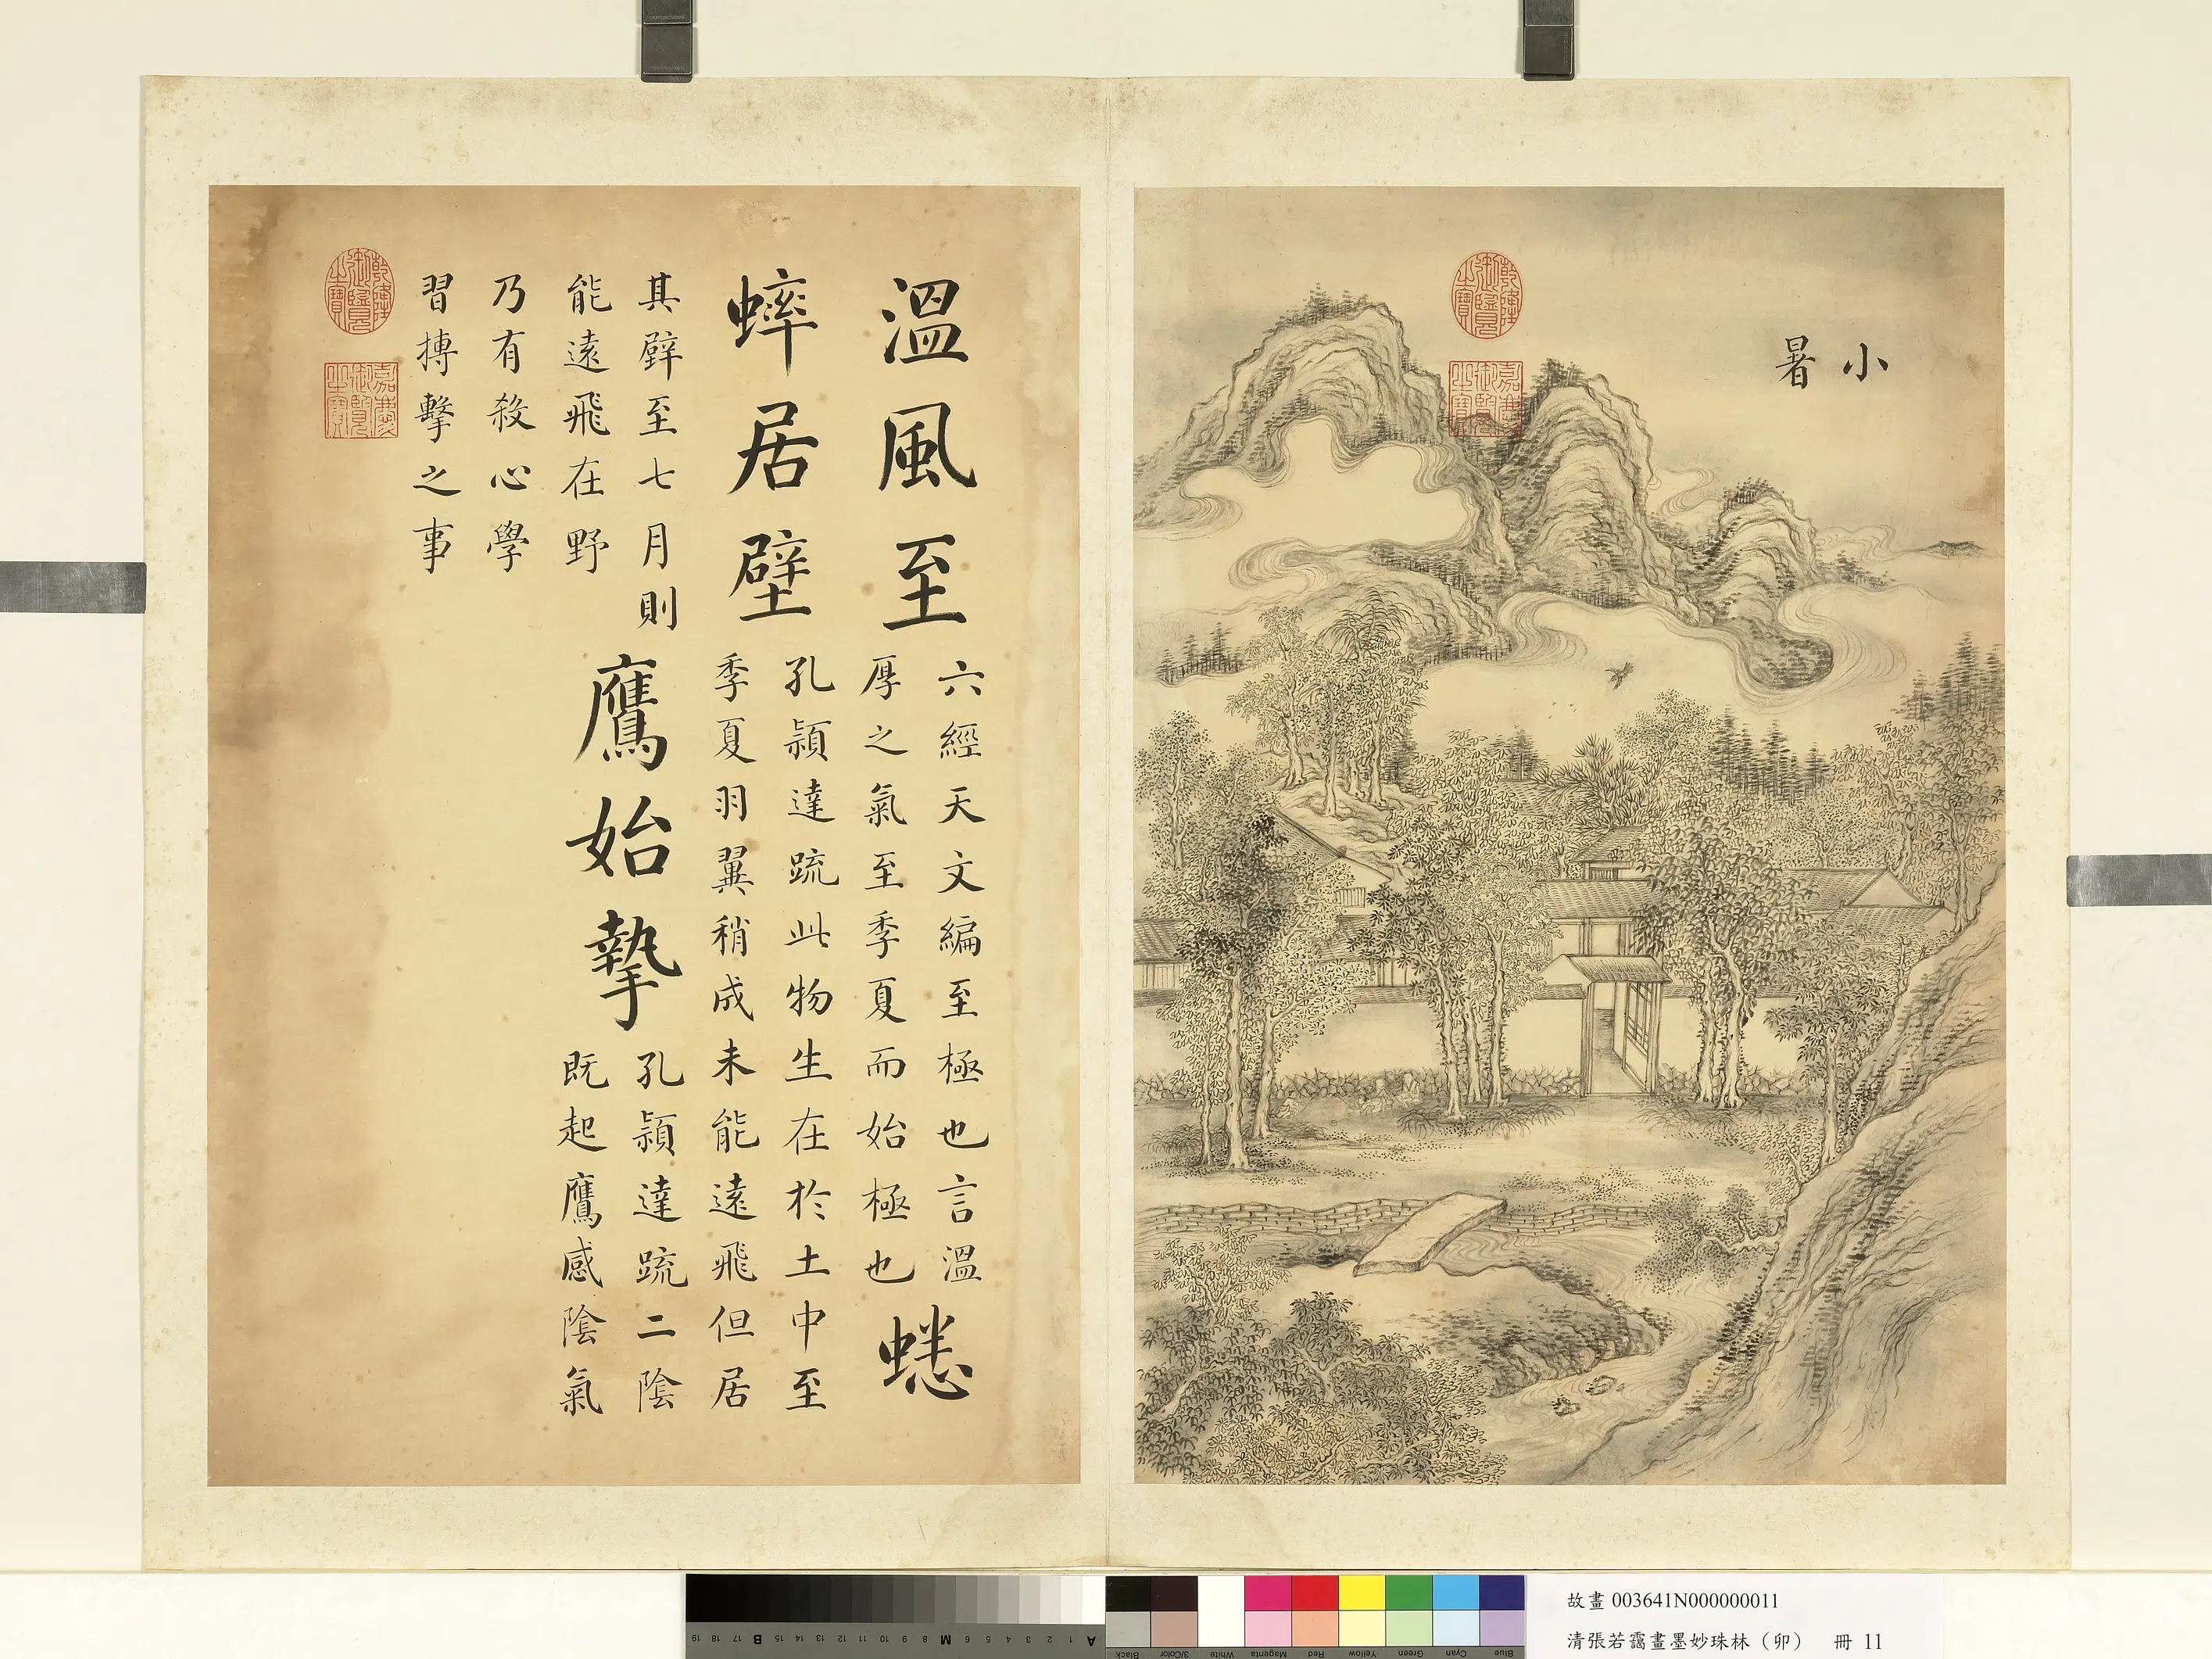 小暑
乾隆御覽之寶
嘉慶御覽之寶
溫風至
六經天文編至極也言溫
厚之氣至季夏而始極也
蟋
蟀居壁
孔穎達疏此物生在於土中至
季夏羽翼稍成未能遠飛但居
其壁至七月則
能遠飛在野
鷹始摯
孔穎達疏二陰
既起鷹感陰氣
乃有殺心學
習搏擊之事
乾隆御覽之寶
嘉慶御覽之寶
A 1 2 3 4 5 6 M 8 9 10 11 12 13 14 15 B 17 18 19
Blue Cyan Green Yellow Red Magenta White 3/Color Black
故畫 003641N000000011
清張若靄畫墨妙珠林（卯） 冊 11